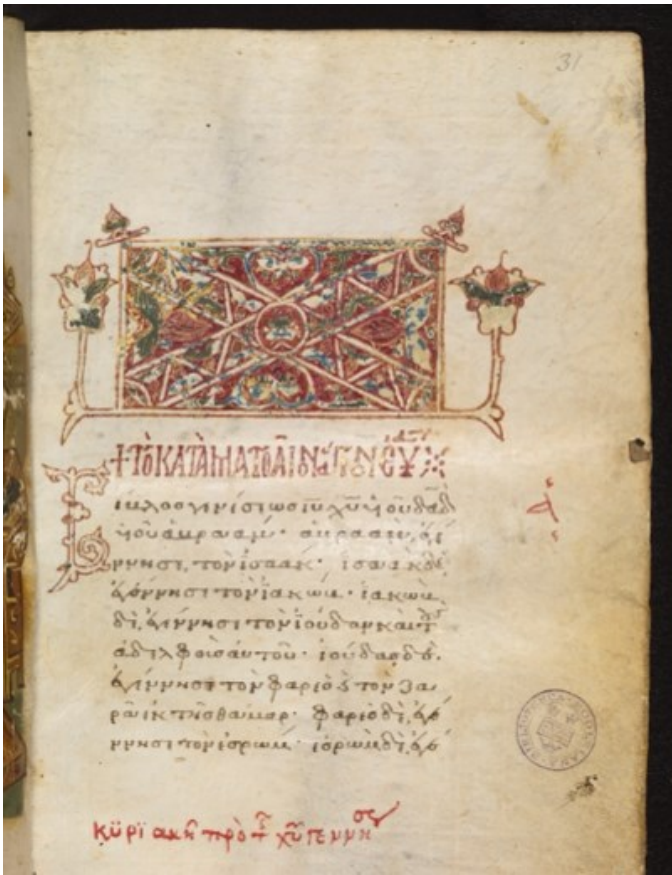 31
+ ΤΟ ΚΑΤΑ ΜΑΤΘΑΙΟΝ ΑΓΙΟΝ ΕΥΑ
Βίβλος γενέσεως ιυ χυ υιου δαδ
υιου αβρααμ· αβρααμ ἐγέ
ννησε τον ισαακ· ισαακ δὲ
ἐγέννησε τον ϊακωβ· ιακωβ
δὲ ἐγέννησε τον ϊουδαν και τ
αδελφους αυτου· ιούδας δὲ
ἐγέννησε τον φαρες τον ζα
ρα εκ της θαμαρ· φαρες δὲ ἐγέ
ννησε τον εσρωμ· εσρωμ δὲ ἐγέ
κϋριακη προ τ χυ γεννησ